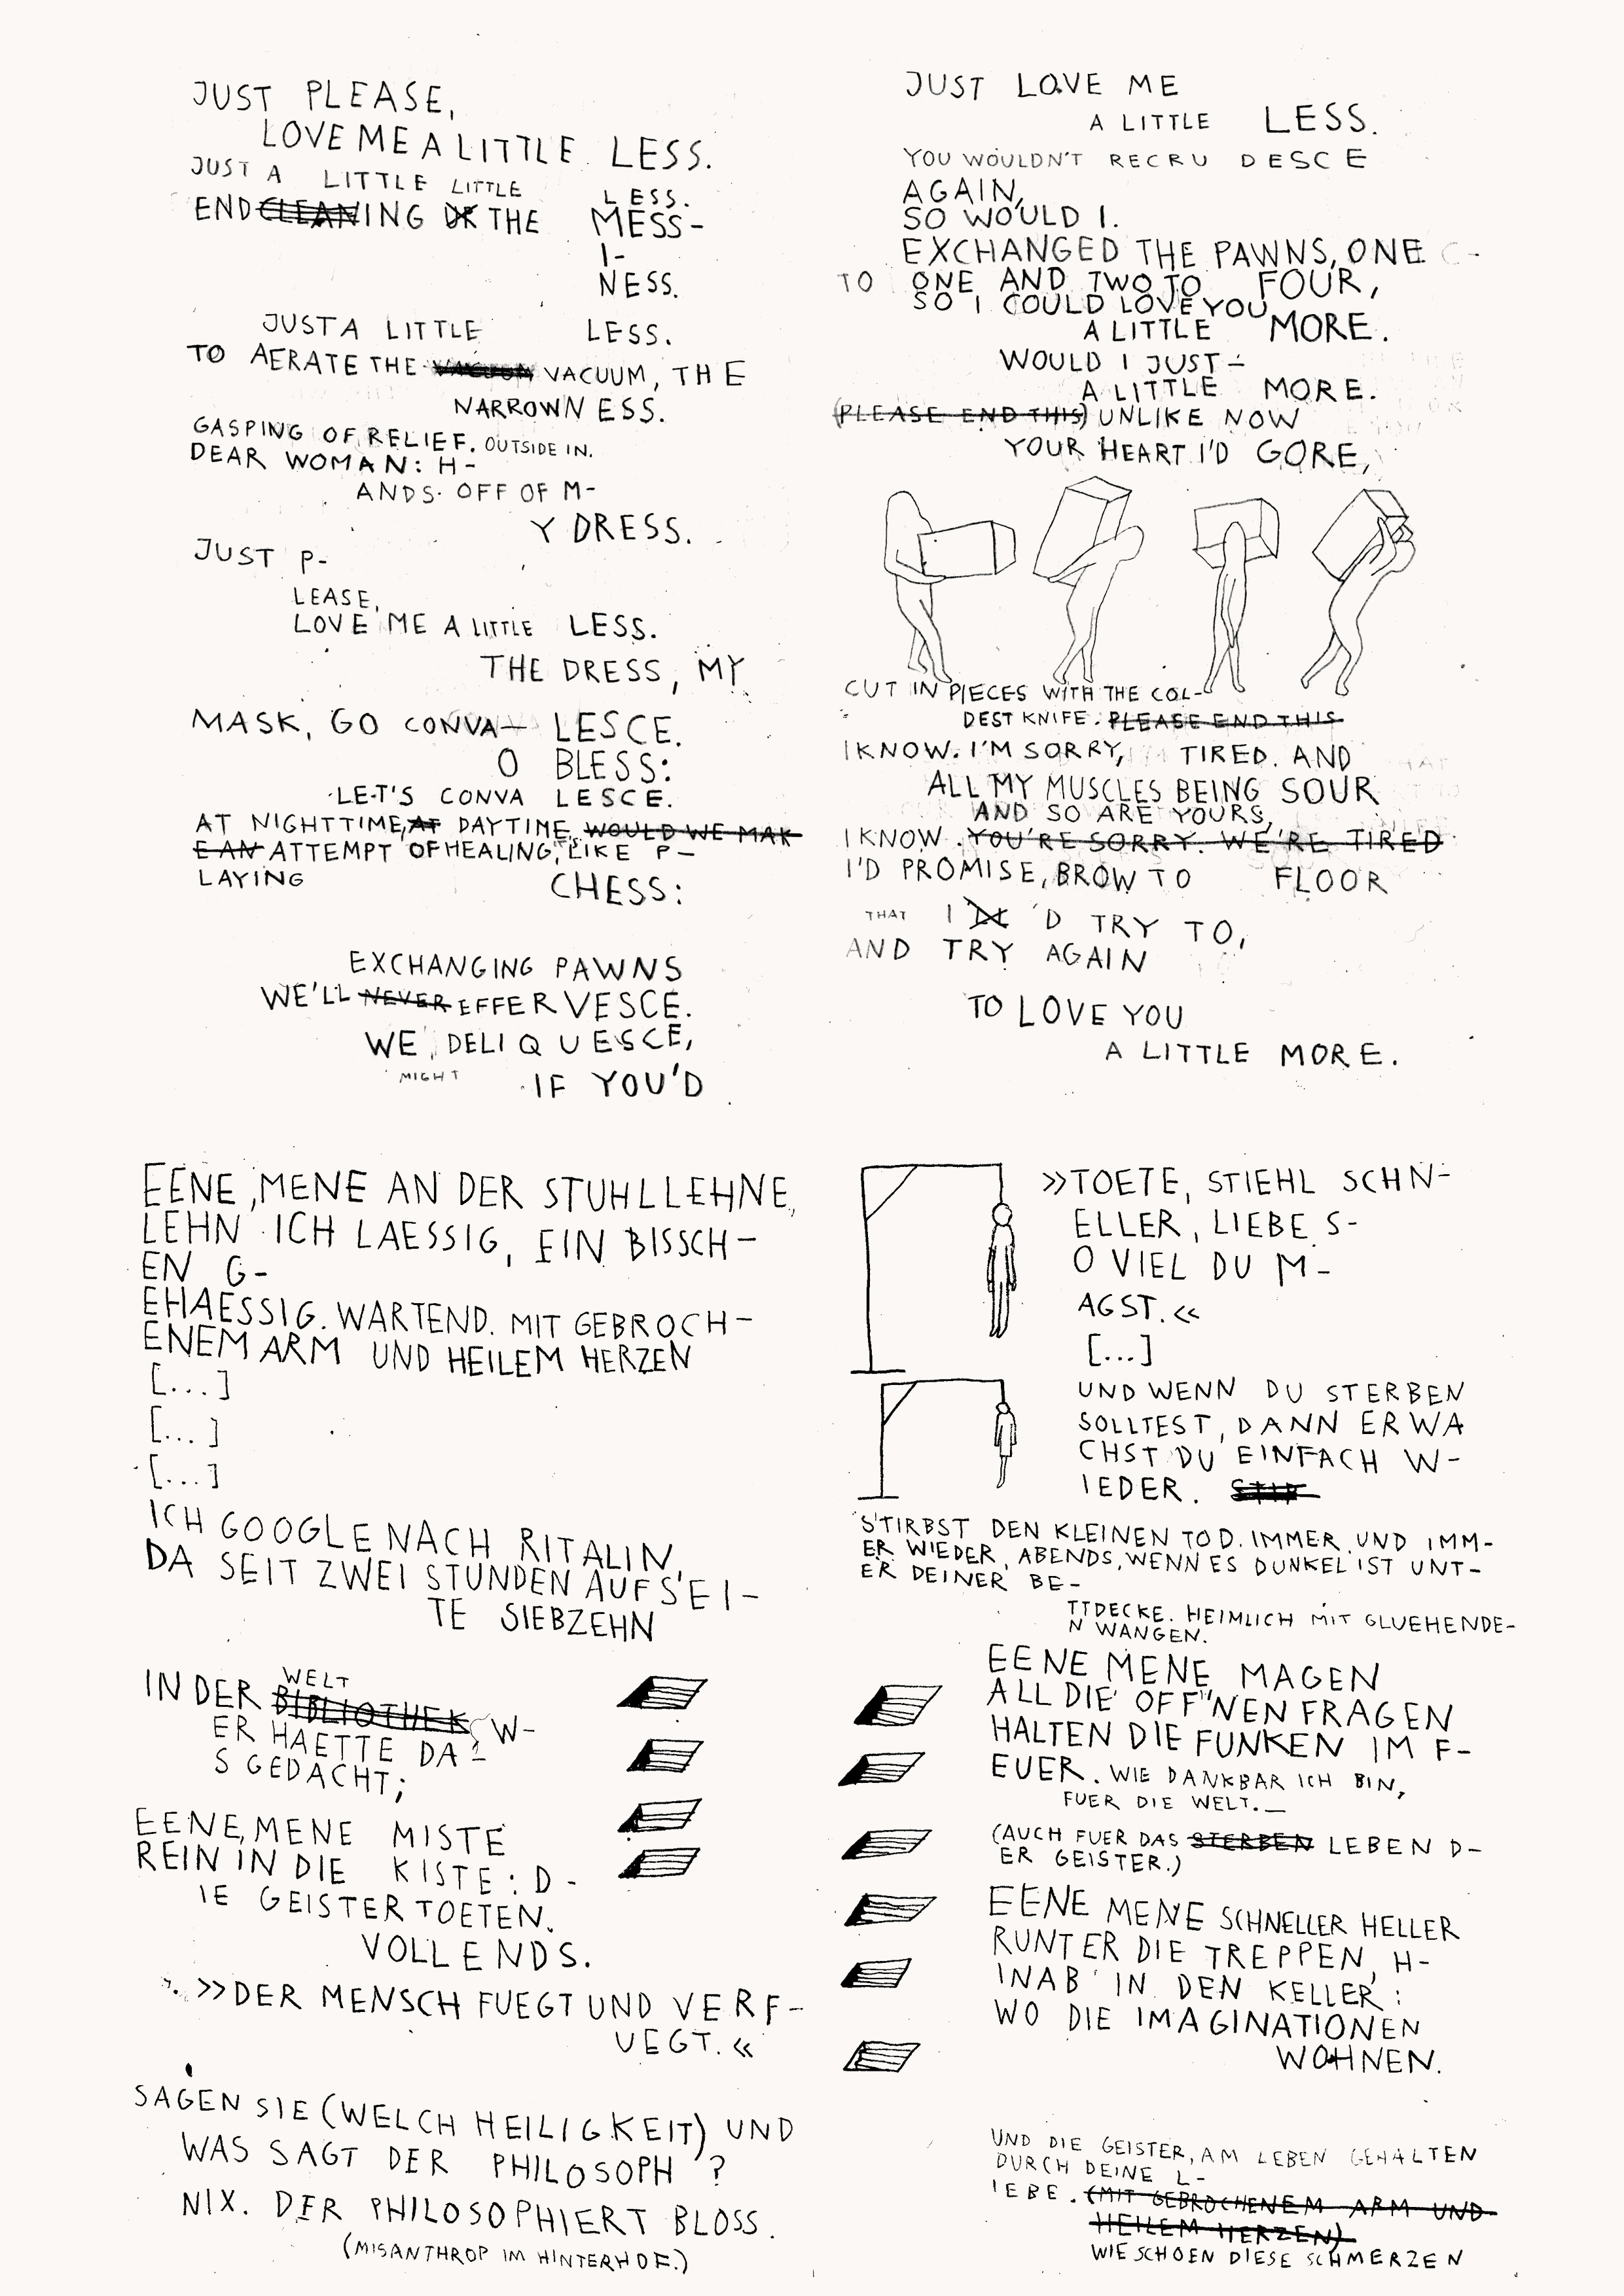 JUST PLEASE,
LOVE ME A LITTLE LESS.
JUST A LITTLE LITTLE LESS.
END CLEANING UP THE MESS-
I-
NESS.
JUST A LITTLE LESS.
TO AERATE THE VACUUM VACUUM, THE
NARROWNESS.
GASPING OF RELIEF. OUTSIDE IN.
DEAR WOMAN: H-
ANDS OFF OF M-
Y DRESS.
JUST P-
LEASE,
LOVE ME A LITTLE LESS.
THE DRESS, MY
MASK, GO CONVA— LESCE.
O BLESS:
LET'S CONVA LESCE.
AT NIGHTTIME, AT DAYTIME, WOULD WE MAK
E AN ATTEMPT OF HEALING, LIKE P-
LAYING
CHESS:
EXCHANGING PAWNS
WE'LL NEVER EFFERVESCE.
WE DELIQUESCE,
MIGHT IF YOU'D
JUST LOVE ME
A LITTLE LESS.
YOU WOULDN'T RECRU DESCE
AGAIN,
SO WOULD I.
EXCHANGED THE PAWNS, ONE
TO ONE AND TWO TO FOUR,
SO I COULD LOVE YOU
A LITTLE MORE.
WOULD I JUST -
A LITTLE MORE.
(PLEASE END THIS) UNLIKE NOW
YOUR HEART I'D GORE,
CUT IN PIECES WITH THE COL-
DEST KNIFE. PLEASE END THIS
I KNOW. I'M SORRY, TIRED. AND
ALL MY MUSCLES BEING SOUR
AND SO ARE YOURS,
I KNOW. YOU'RE SORRY. WE'RE TIRED
I'D PROMISE, BROW TO FLOOR
THAT I 'D TRY TO,
AND TRY AGAIN
TO LOVE YOU
A LITTLE MORE.
EENE, MENE AN DER STUHLLEHNE,
LEHN ICH LAESSIG, EIN BISSCH-
EN G-
EHAESSIG. WARTEND. MIT GEBROCH-
ENEM ARM UND HEILEM HERZEN
[...]
[...]
[...]
ICH GOOGLE NACH RITALIN,
DA SEIT ZWEI STUNDEN AUF SEI-
TE SIEBZEHN
WELT
IN DER BIBLIOTHEK, W-
ER HAETTE DA-
S GEDACHT;
EENE, MENE MISTE
REIN IN DIE KISTE: D-
IE GEISTER TOETEN.
VOLLENDS.
»DER MENSCH FUEGT UND VERF-
UEGT.«
SAGEN SIE (WELCH HEILIGKEIT) UND
WAS SAGT DER PHILOSOPH?
NIX. DER PHILOSOPHIERT BLOSS.
(MISANTHROP IM HINTERHOF.)
»TOETE, STIEHL SCHN-
ELLER, LIEBE S-
O VIEL DU M-
AGST.«
[...]
UND WENN DU STERBEN
SOLLTEST, DANN ERWA
CHST DU EINFACH W-
IEDER.
STIRBST DEN KLEINEN TOD. IMMER UND IMM-
ER WIEDER, ABENDS, WENN ES DUNKEL IST UNT-
ER DEINER BE-
TTDECKE. HEIMLICH MIT GLUEHENDE-
N WANGEN.
EENE MENE MAGEN
ALL DIE OFF'NEN FRAGEN
HALTEN DIE FUNKEN IM F-
EUER. WIE DANKBAR ICH BIN,
FUER DIE WELT.—
(AUCH FUER DAS STERBEN LEBEN D-
ER GEISTER.)
EENE MENE SCHNELLER HELLER
RUNTER DIE TREPPEN, H-
INAB IN DEN KELLER:
WO DIE IMAGINATIONEN
WOHNEN.
UND DIE GEISTER, AM LEBEN GEHALTEN
DURCH DEINE L-
IEBE. (MIT GEBROCHENEM ARM UND
HEILEM HERZEN)
WIE SCHOEN DIESE SCHMERZEN